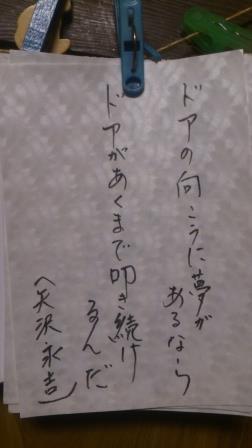 ドアの向こうに夢が
あるなら
ドアがあくまで叩き続け
るんだ
(矢沢永吉)